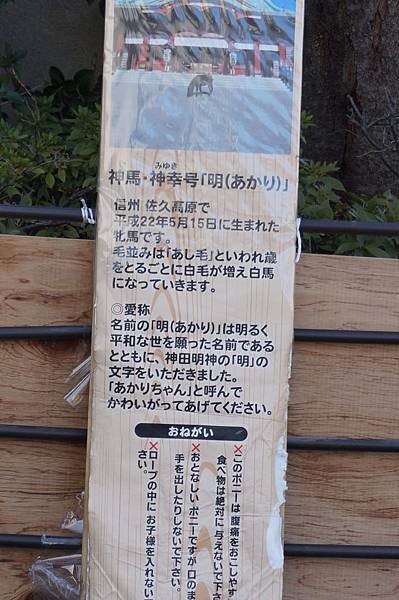 みゆき
神馬・神幸号「明(あかり)」
信州 佐久高原で
平成22年5月15日に生まれた
牝馬です。
毛並みは「あし毛」といわれ歳
をとるごとに白毛が増え白馬
になっていきます。
◎愛称
名前の「明(あかり)」は明るく
平和な世を願った名前である
とともに、神田明神の「明」の
文字をいただきました。
「あかりちゃん」と呼んで
かわいがってあげてください。
おねがい
×このポニーは腹痛をおこしやす
食べ物は絶対に 与えないで下さ
×おとなしい ポニーですが 口のま
手を出したりしないで下さい。
×ロープの中に お子様を入れない
さい。